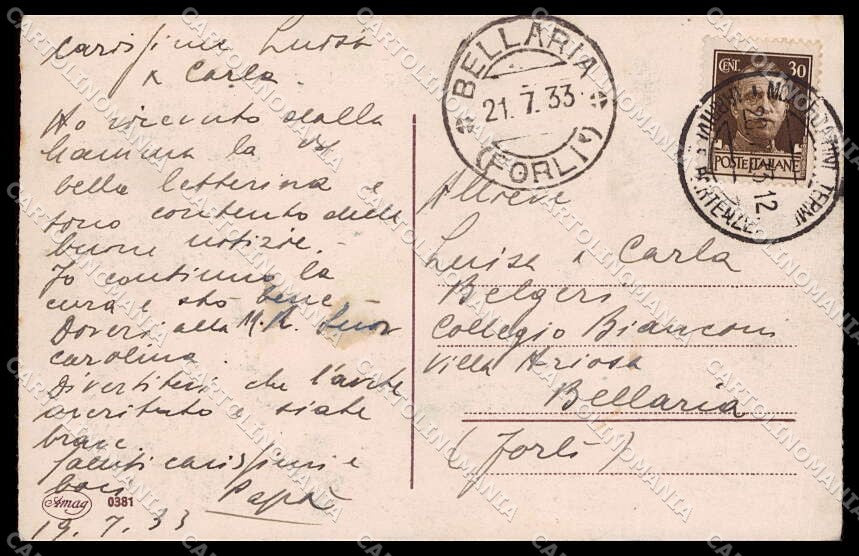 Carissime Luisa
e Carla.
Ho ricevuto dalla
Mamma la vs/
bella letterina e
sono contento delle
buone notizie. -
Io continuo la
cura e sto bene -
Doveri alla M. R. Suor
Carolina.
Divertitevi che l'avete
meritato e siate
brave
Saluti carissimi e
baci Papà
19.7.33
Amag 0381
BELLARIA
21. 7. 33
(FORLI)
CENT. 30
POSTE ITALIANE
MONTECATINI TERME
12
Allieve
Luisa e Carla
Belgeri
Collegio Bianconi
Villa Ariosa
Bellaria
(Forlì)
CARTOLINOMANIA